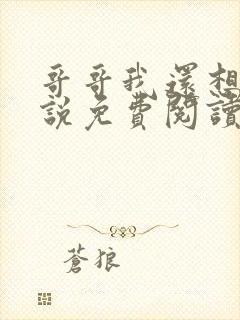 哥哥我還想
說免費閱讀
蒼狼